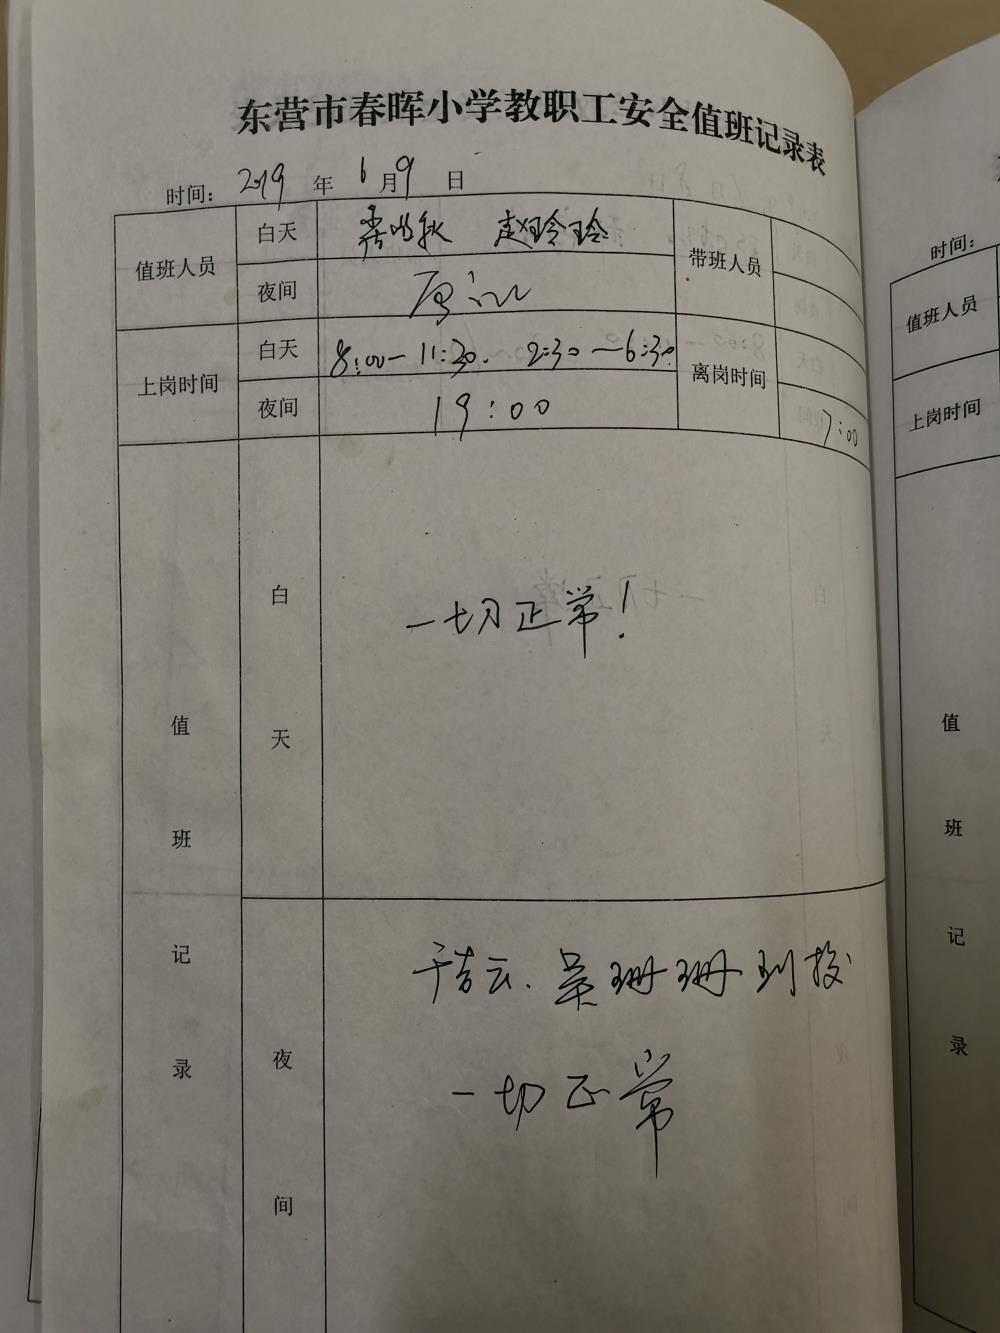 东营市春晖小学教职工安全值班记录表
时间：2019 年 6 月 9 日
值班人员 白天 赵玲玲 带班人员
夜间
上岗时间 白天 8:00—11:30. 2:30—6:30 离岗时间
夜间 19:00 7:00
值班记录
白天
一切正常！
夜间
吴珊珊到校
一切正常
时间：
值班人员
上岗时间
值班记录